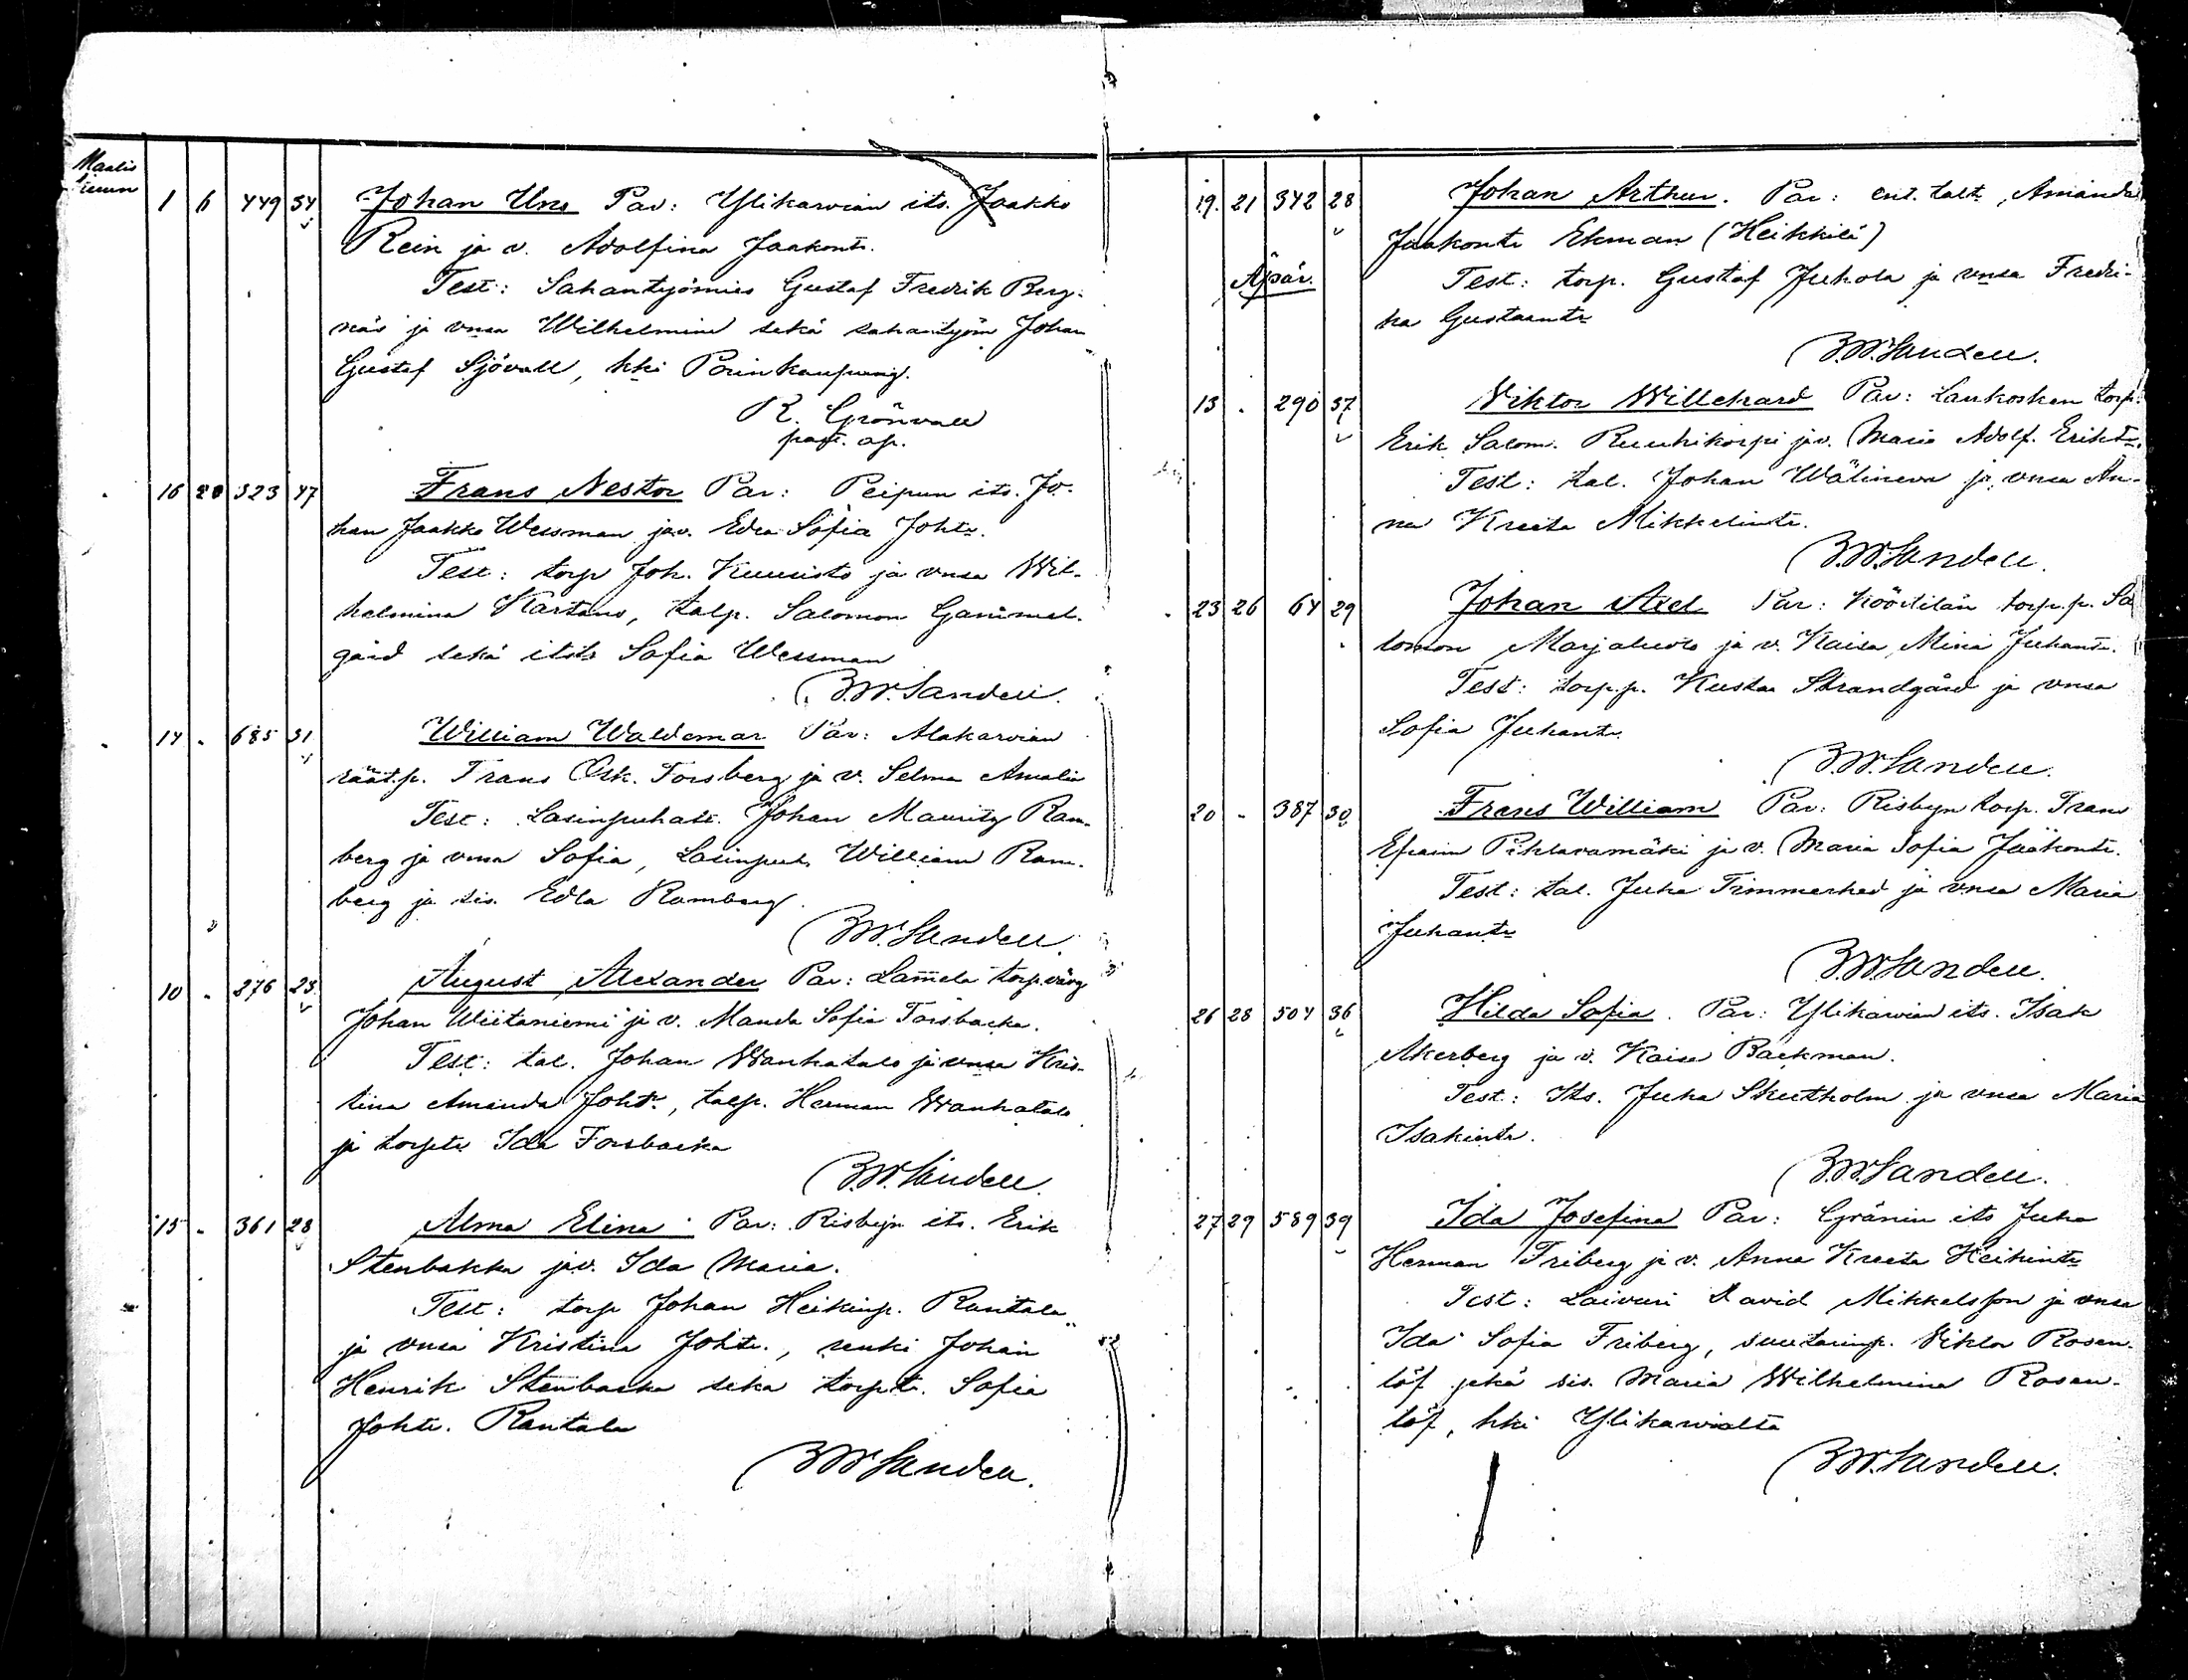 Maalis
kuun
1 6 449 34 Johan Uno Par: Ylikarvian its. Jaakko
Rein ja v. Adolfina Jaakont.
Test: Sahantyömies Gustaf Fredrik Berg-
näs ja vmsa Wilhelmina sekä sahantyöm Johan
Gustaf Sjövall, kki Porin kaupung.
R. Grönvall
past. ap.
16 20 323 47 Frans Nestor Par: Peipun its. Jo-
han Jaakko Wessman ja v. Edla Sofia Johtr.
Test: torp Joh. Kuusisto ja vmsa Wil-
helmina Kartano, talp. Salomon Gammel-
gård sekä itstr Sofia Wessman
B.W. Sandell.
14 - 685 31 William Waldemar Par: Alakarvian
räät.p. Frans Osk. Forsberg ja v. Selma Amalia
Test: Lasinpuhalt. Johan Mauritz Ram-
berg ja vmsa Sofia, Lasinpuh. William Ram-
berg ja sis. Edla Ramberg.
B.W. Sandell.
10 - 276 23 August Alexander Par: Lamela torp.väv
Johan Wiitaniemi ja v. Manda Sofia Forsbacka.
Test: tal. Johan Wanhatalo ja vmsa Kris-
tina Amanda Joht., talp. Herman Wanhatalo
ja torptr Ida Forsbacka
B.W. Sandell.
15 - 361 28 Alma Elina Par: Risbyn its. Erik
Stenbakka ja v. Ida Maria.
Test: torp Johan Heikinp. Rantala
ja vmsa Kristina Johtr., renki Johan
Henrik Stenbacka sekä torpt. Sofia
Johtr. Rantala
B.W. Sandell.
19. 21 342 28 Johan Arthur. Par: ent. taltr, Amanda
Jaakontr Ekman (Heikkilä)
Äpär. Test: torp. Gustaf Juhola ja vmsa Fredri-
ka Gustaantr
B.W. Sandell.
13 . 290 37 Viktor Willehard Par: Lankosken torp.
Erik Salom. Ruuhikorpi ja v. Maria Adolf. Eriktr.
Test: tal. Johan Wälineva ja vmsa An-
na Kreeta Mikkelintr.
B.W. Sandell.
23 26 64 29 Johan Axel Par: Köörtilän torp.p. Sa
lomon Marjaluoto ja v. Kaisa Mina Juhantr.
Test: torp.p. Kustaa Strandgård ja vmsa
Sofia Juhantr.
B.W. Sandell.
20 - 387 30 Frans William Par: Risbyn torp. Frans
Efraim Pihlavamäki ja v. Maria Sofia Jaakontr.
Test: tal. Juha Timmerhed ja vmsa Maria
Juhantr
B.W. Sandell.
26 28 504 36 Hilda Sofia. Par: Ylikarvian its. Isak
Åkerberg ja v. Kaisa Backman.
Test: Its. Juha Skutholm ja vmsa Maria
Isakintr.
B.W. Sandell.
27 29 589 39 Ida Josefina Par: Gränin its Juha
Herman Friberg ja v. Anna Kreeta Heikintr
Test: Laivuri David Mikkelsson ja vmsa
Ida Sofia Friberg, suutarinp. Viktor Rosen-
löf sekä sis. Maria Wilhelmina Rosen-
löf, kki Ylikarvialta
B.W. Sandell.